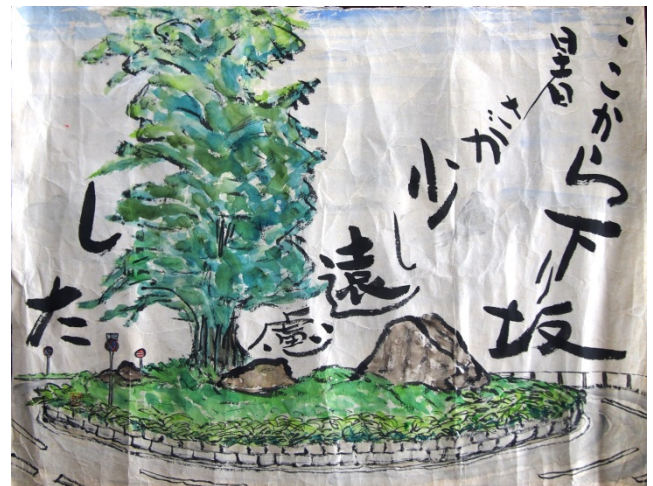 ここから下り坂
暑さが少し遠慮
した